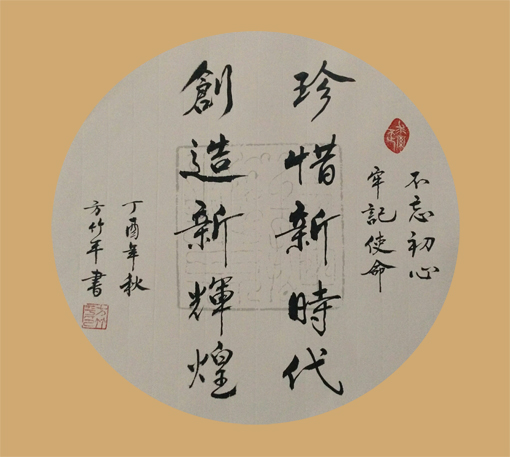 不忘初心
牢記使命
珍惜新時代
創造新輝煌
丁酉年秋
方竹年書